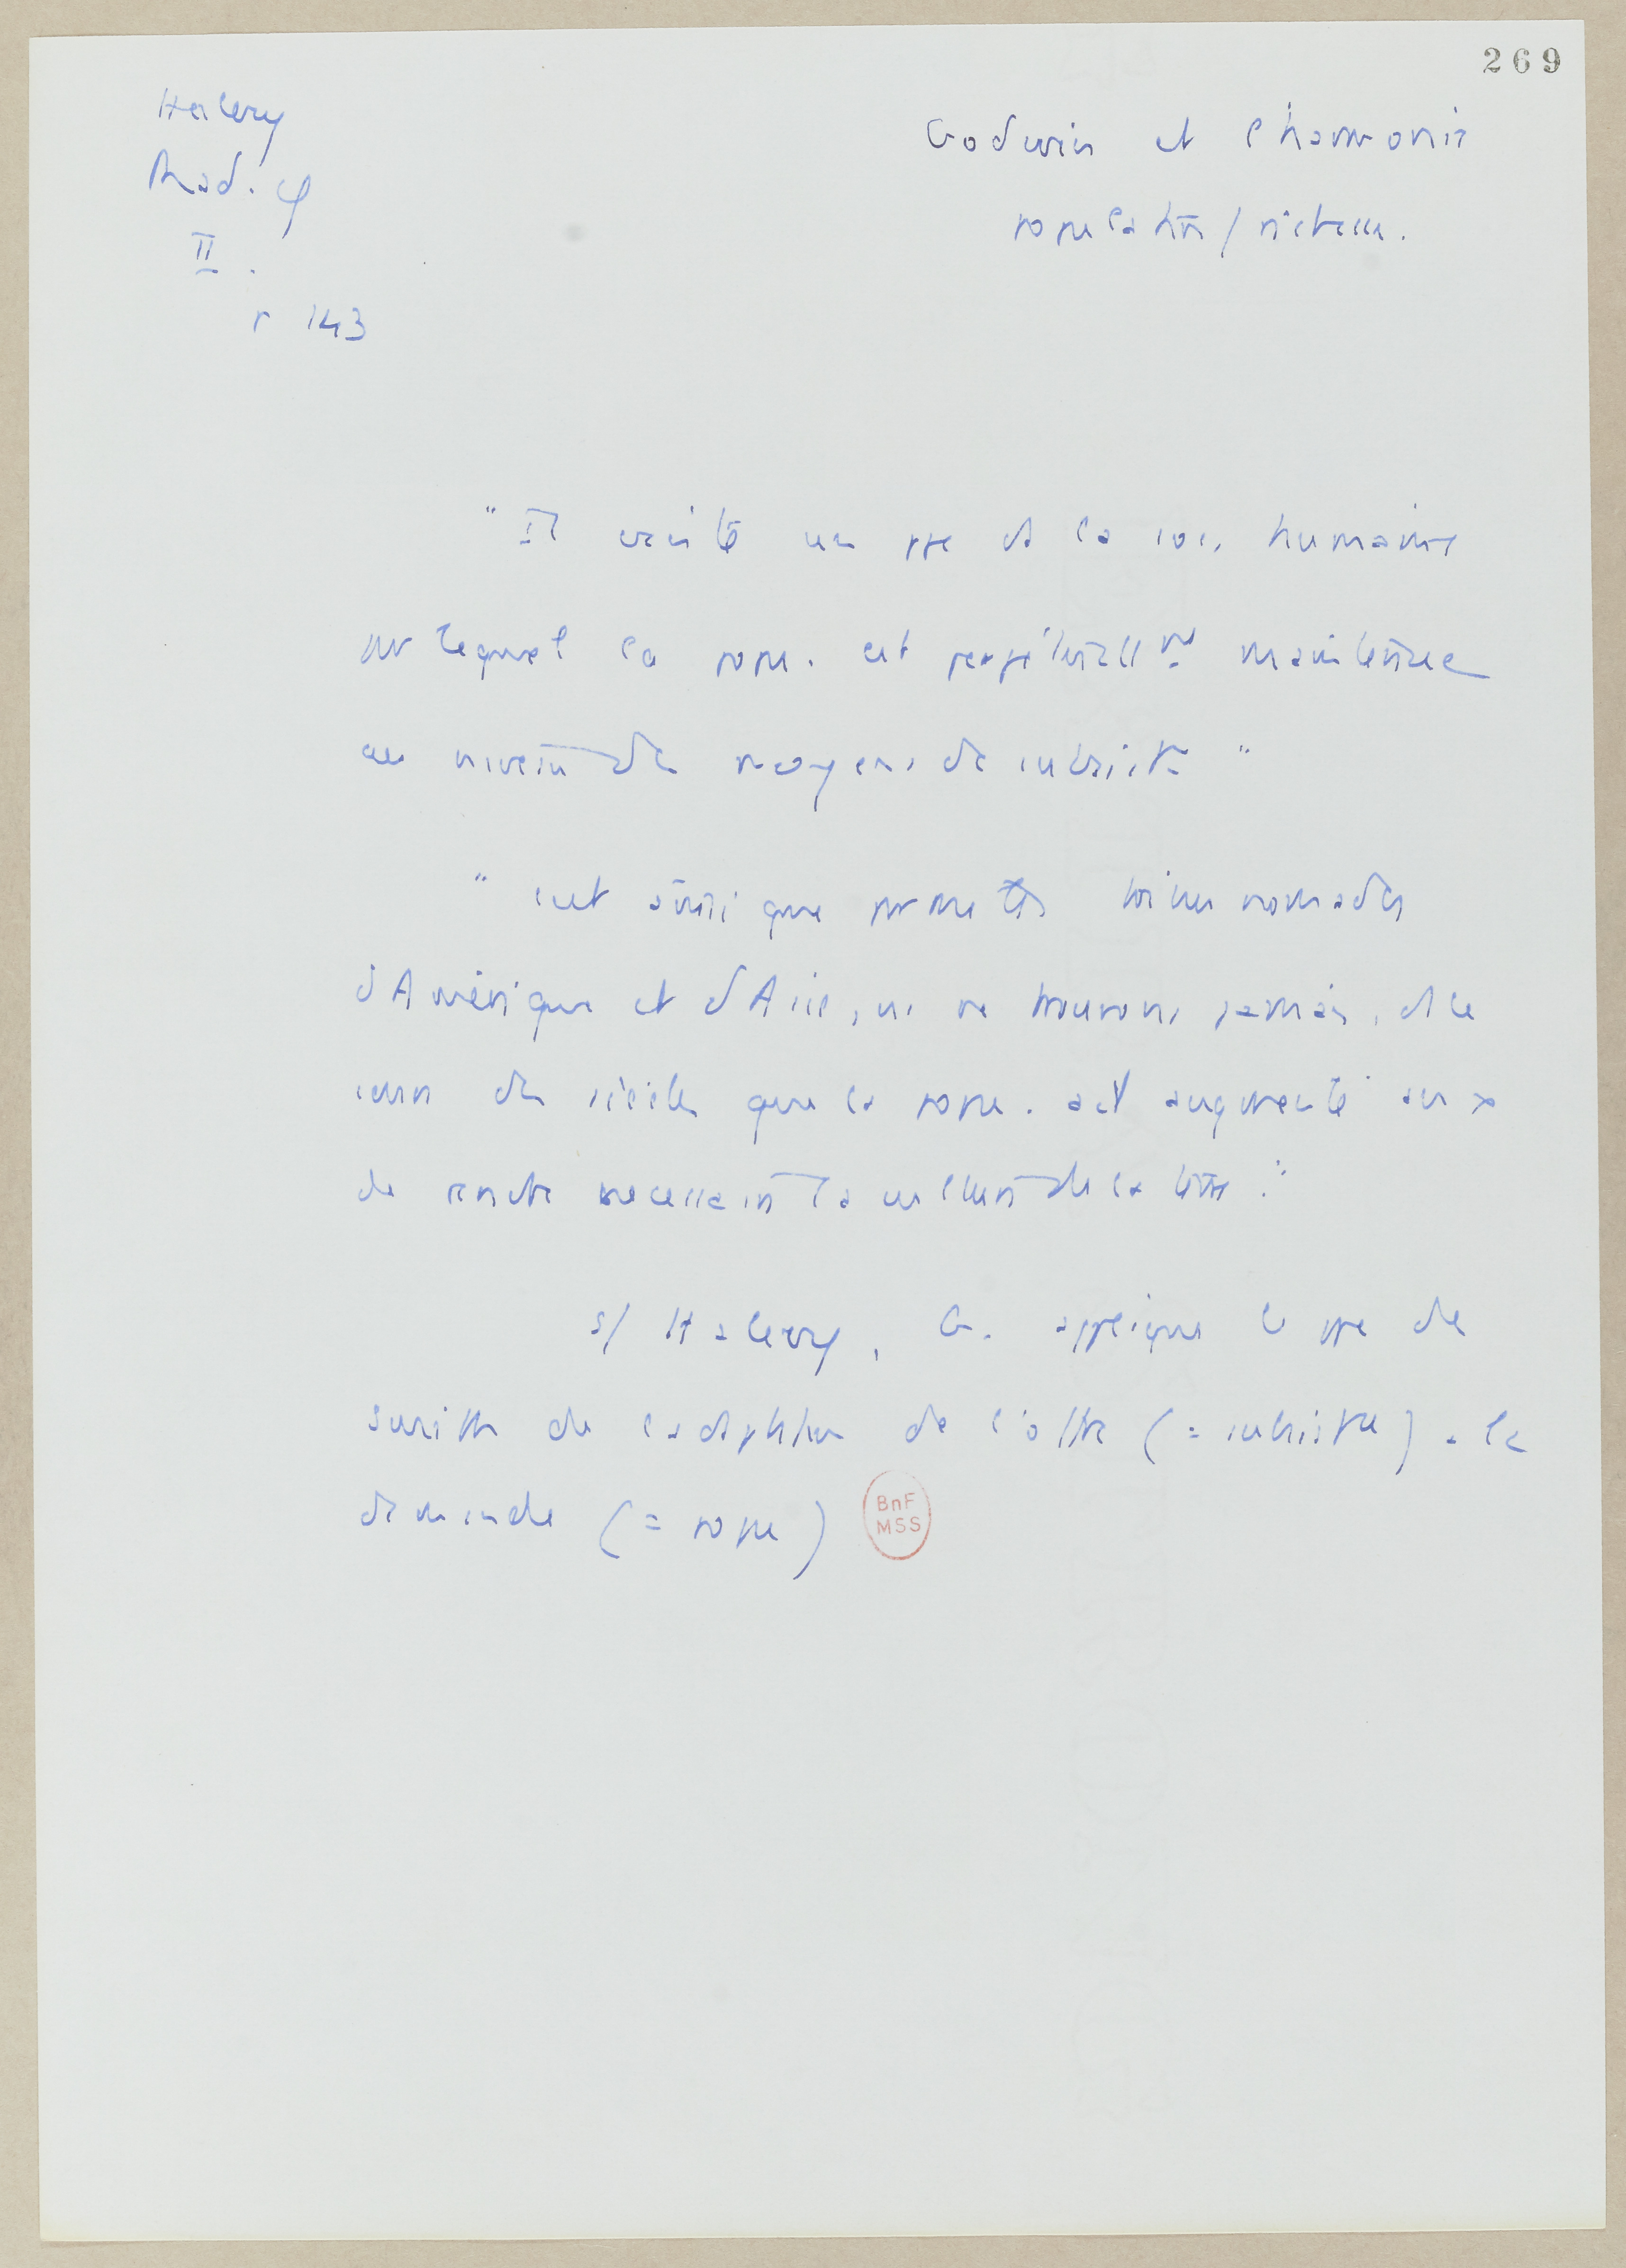 269
Halevy
Rad. φ
II.
p 143
Godwin et l'harmonie
population / richesse.
" Il existe un ppe ds la soc. humaine
par lequel la popu. est perpétuellmt maintenue
au niveau des moyens de subsistce "
" c'est ainsi que parmi les tribus nomades
d'Amérique et d'Asie, ns ne trouvons jamais, ds le
cours des siècles que la popu. ait augmenté au pt
de rendre necessaire la culture de la terre."
s/ Halevy, G. applique le ppe de
Smith de l'adaptation de l'offre (= subsistce) a la
demande (= popu)
BnF
MSS